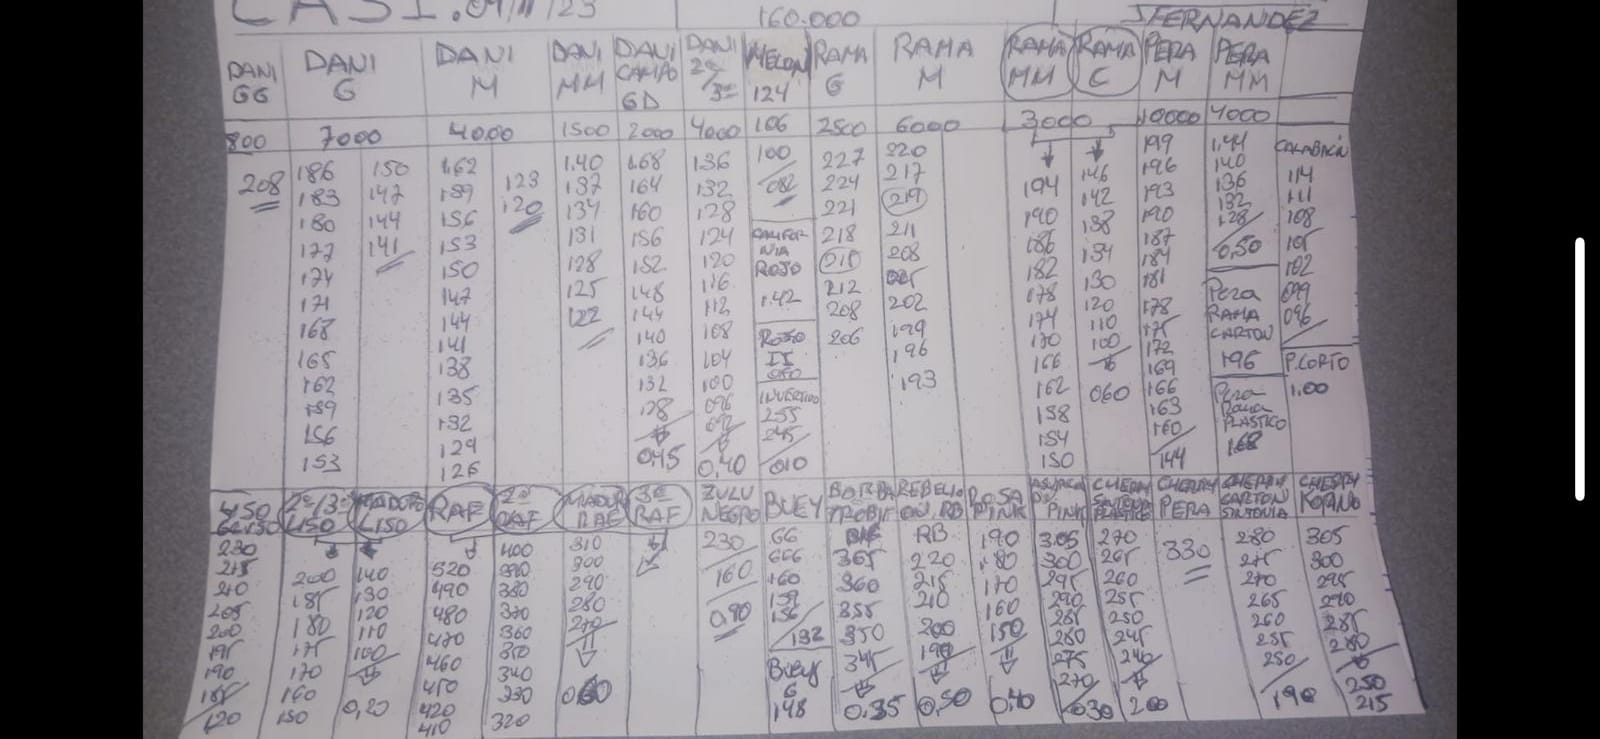 CASI. 09/11/23 160.000 J FERNANDEZ
DANI GG
DANI G
DANI M
DANI MM
DANI CAMPO GD
DANI 2ª/3ª
MELON 124
RAMA G
RAMA M
RAMA MM
RAMA C
PERA M
PERA MM
800 7000 4000 1500 2000 4000 106 2500 6000 3000 10000 4000
208
186 150
183 147
180 144
177 141
174
171
168
165
162
159
156
153
162 123
159 120
156
153
150
147
144
141
138
135
132
129
126
1.40
137
134
131
128
125
122
168
164
160
156
152
148
144
140
136
132
128
0,45
136
132
128
124
120
116
112
108
104
100
096
092
0,40
100
082
CALIFORNIA
ROJO
1.42
ROJO
II
INVERTIDO
255
245
010
227
224
221
218
215
212
208
206
220
217
214
211
208
205
202
199
196
193
194
190
186
182
178
174
170
166
162
158
154
150
146
142
138
134
130
120
110
100
060
199
196
193
190
187
184
181
178
175
172
169
166
163
160
144
1.44
140
136
132
128
0,50
Pera
RAMA
CARTON
196
Pera
Rama
PLASTICO
168
CALABACIN
114
111
108
105
102
099
096
P.CORTO
1.00
450
230
215
210
205
200
195
190
185
120
2ª/3ª
450
200
185
180
175
170
160
150
MADURO
L150
140
130
120
110
100
0,20
RAF
520
490
480
470
460
450
420
410
2ª
RAF
400
390
380
370
360
350
340
330
320
MADUR
RAF
310
300
290
280
270
060
3ª
RAF
ZULU
NEGRO
230
160
0,90
BUEY
GG
666
160
159
156
132
Buey
G
148
365
360
355
350
345
0.35
RB
220
215
210
200
190
0,50
ROSA
PINK
190
180
170
160
150
0,40
PINK
305
300
295
290
285
280
275
270
030
CHERRY
SINTONIA
PLASTICO
270
265
260
255
250
245
240
200
CHERRY
PERA
330
CHERRY
CARTON
SINTONIA
280
275
270
265
260
255
250
190
CHERRY
305
300
295
290
285
280
250
215